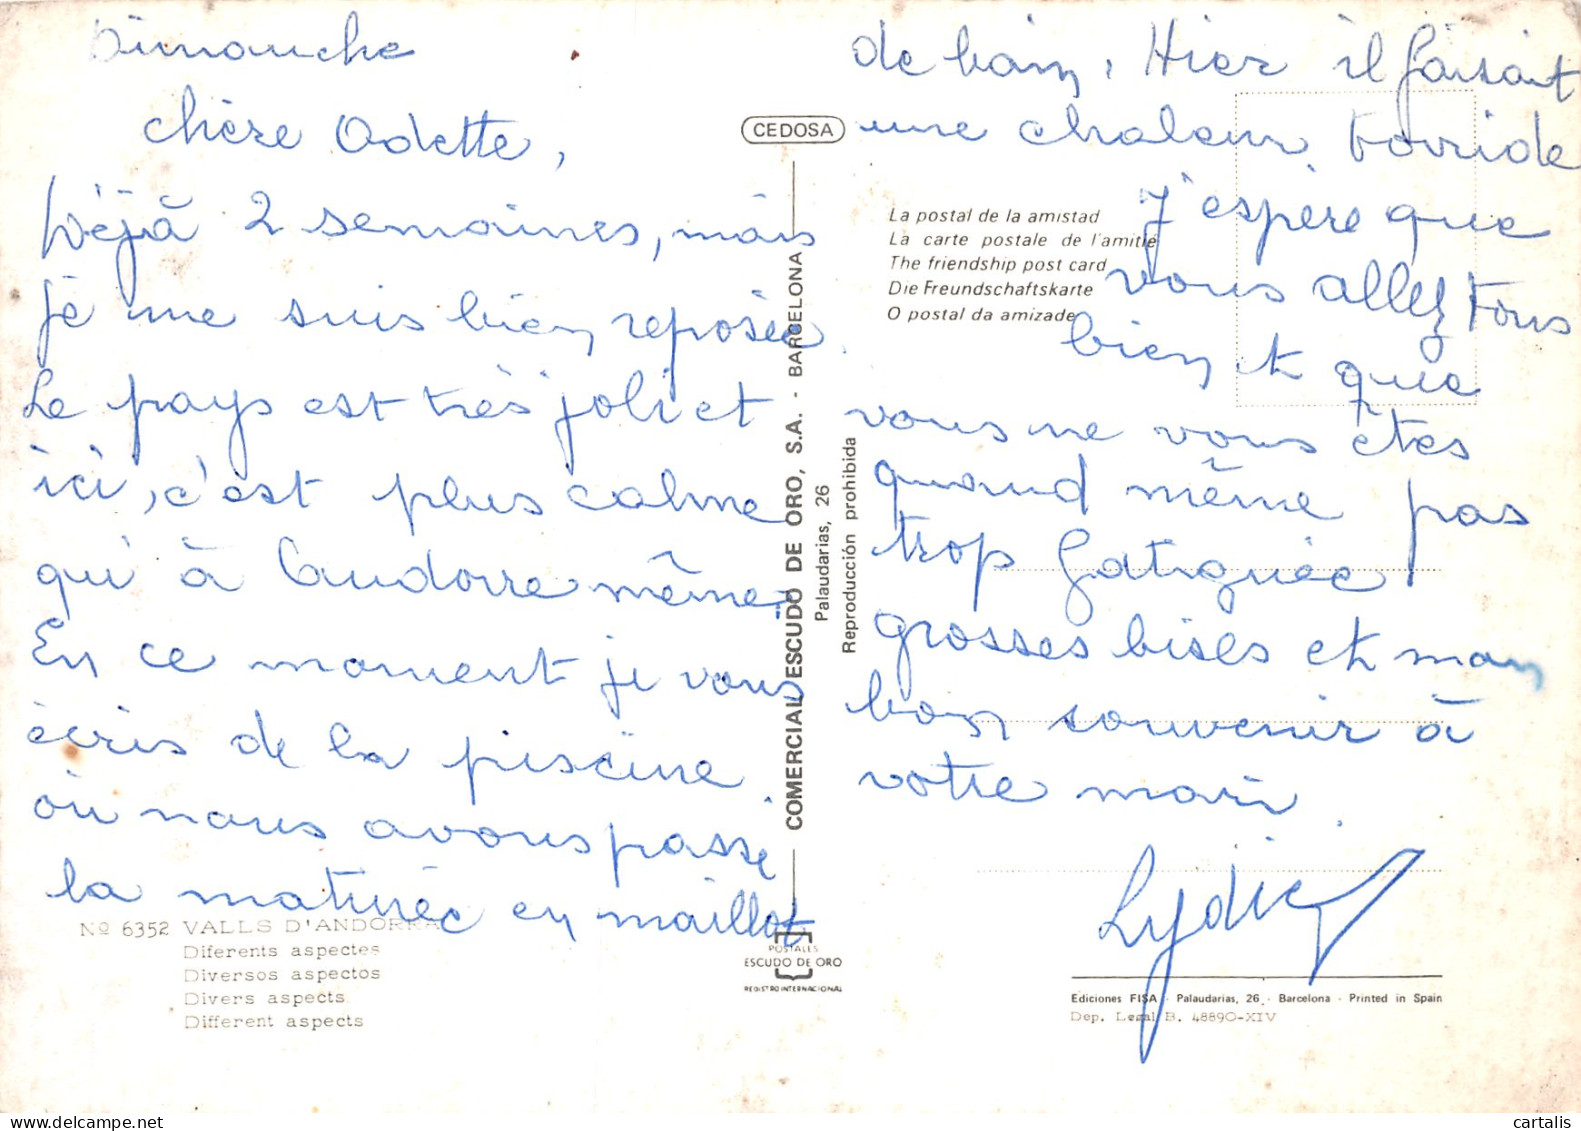 Dimanche
chère Odette,
Déjà 2 semaines, mais
je me suis bien reposée.
Le pays est très joli et
ici, c'est plus calme
qu'à l'andorre même.
En ce moment je vous
écris de la piscine
où nous avons passé
la matinée en maillot
de bain. Hier il faisait
une chaleur torride
J'espère que
vous allez tous
bien et que
vous ne vous êtes
quand même pas
trop fatiguée
grosses bises et mon
bon souvenir à
votre mari.
Lydie
CEDOSA
La postal de la amistad
La carte postale de l'amitie
The friendship post card
Die Freundschaftskarte
O postal da amizade
COMERCIAL ESCUDO DE ORO, S.A. - BARCELONA
Palaudarias, 26
Reproducción prohibida
Nº 6352 VALLS D'ANDORRA
Diferents aspectes
Diversos aspectos
Divers aspects
Different aspects
POSTALES
ESCUDO DE ORO
REGISTRO INTERNACIONAL
Ediciones FISA - Palaudarias, 26 - Barcelona - Printed in Spain
Dep. Legal B. 48890-XIV
cartalis